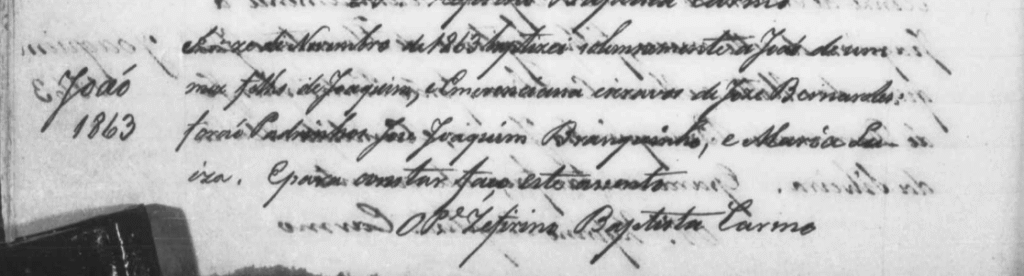 Zeferino Baptista Carmo
Joaó
1863
Onze de Novembro de 1863 baptizei solemnemente a João de um
mez filho de Joaquim, e Emerenciana escravos de Joze Bernardes.
foraó Padrinhos Joze Joaquim Branquinho, e Maria Lu-
iza. E para constar faço este assento
O Pe. Zeferino Baptista Carmo